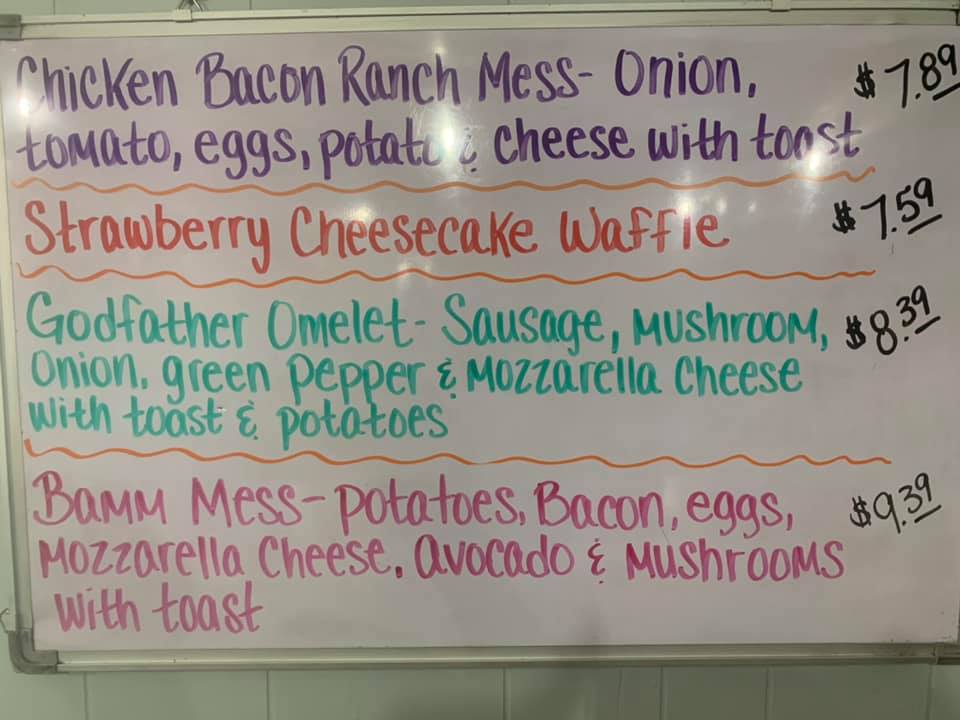 Chicken Bacon Ranch Mess- Onion, $7.89
tomato, eggs, potato & cheese with toast
Strawberry Cheesecake Waffle $7.59
Godfather Omelet- Sausage, mushroom, $8.39
Onion, green pepper & mozzarella cheese
with toast & potatoes
Bamm Mess- potatoes, Bacon, eggs, $9.39
mozzarella cheese, avocado & mushrooms
with toast